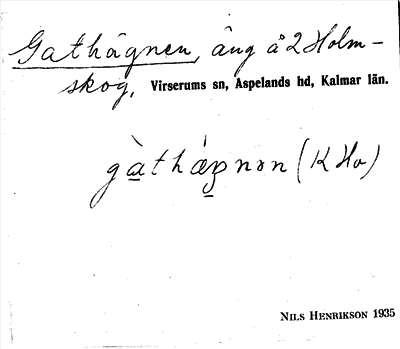 Gathägnen, äng å 2 Holm-
skog, Virserums sn, Aspelands hd, Kalmar län.
gàthǽgnən (K Ho)
NILS HENRIKSON 1935